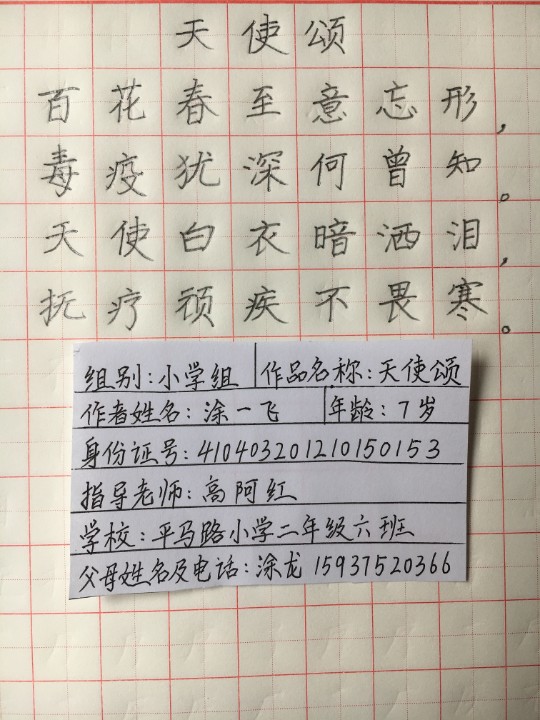 天使颂
百花春至意忘形，
毒疫犹深何曾知。
天使白衣暗洒泪，
抚疗顽疾不畏寒。
组别：小学组 作品名称：天使颂
作者姓名：涂一飞 年龄：7岁
身份证号：410403201210150153
指导老师：高阿红
学校：平马路小学二年级六班
父母姓名及电话：涂龙 15937520366